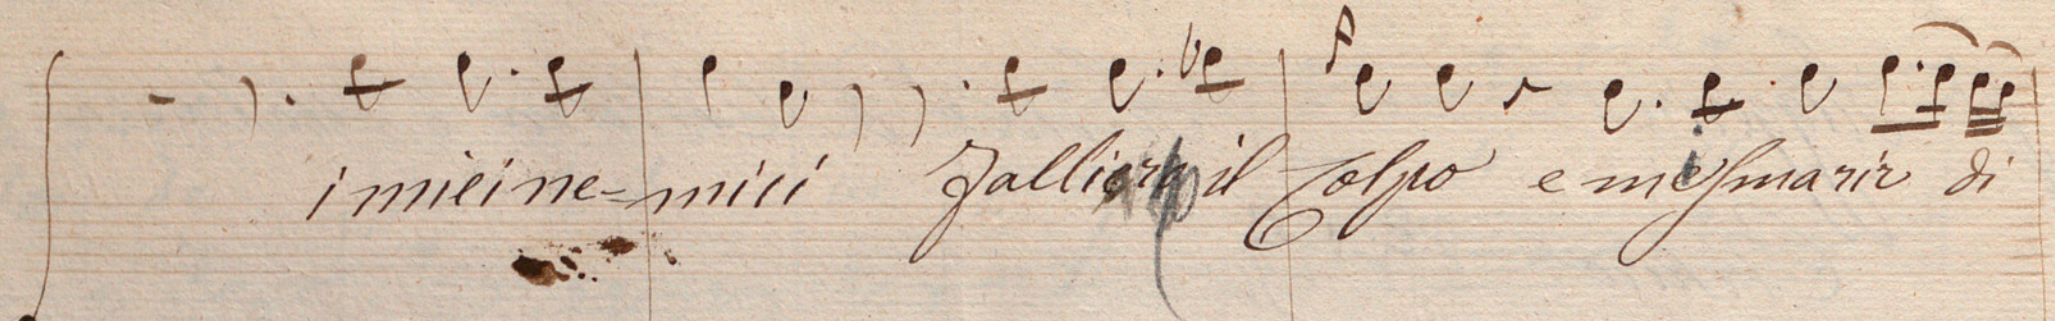 i miei ne-mici falliora il Colpo e me smarir di